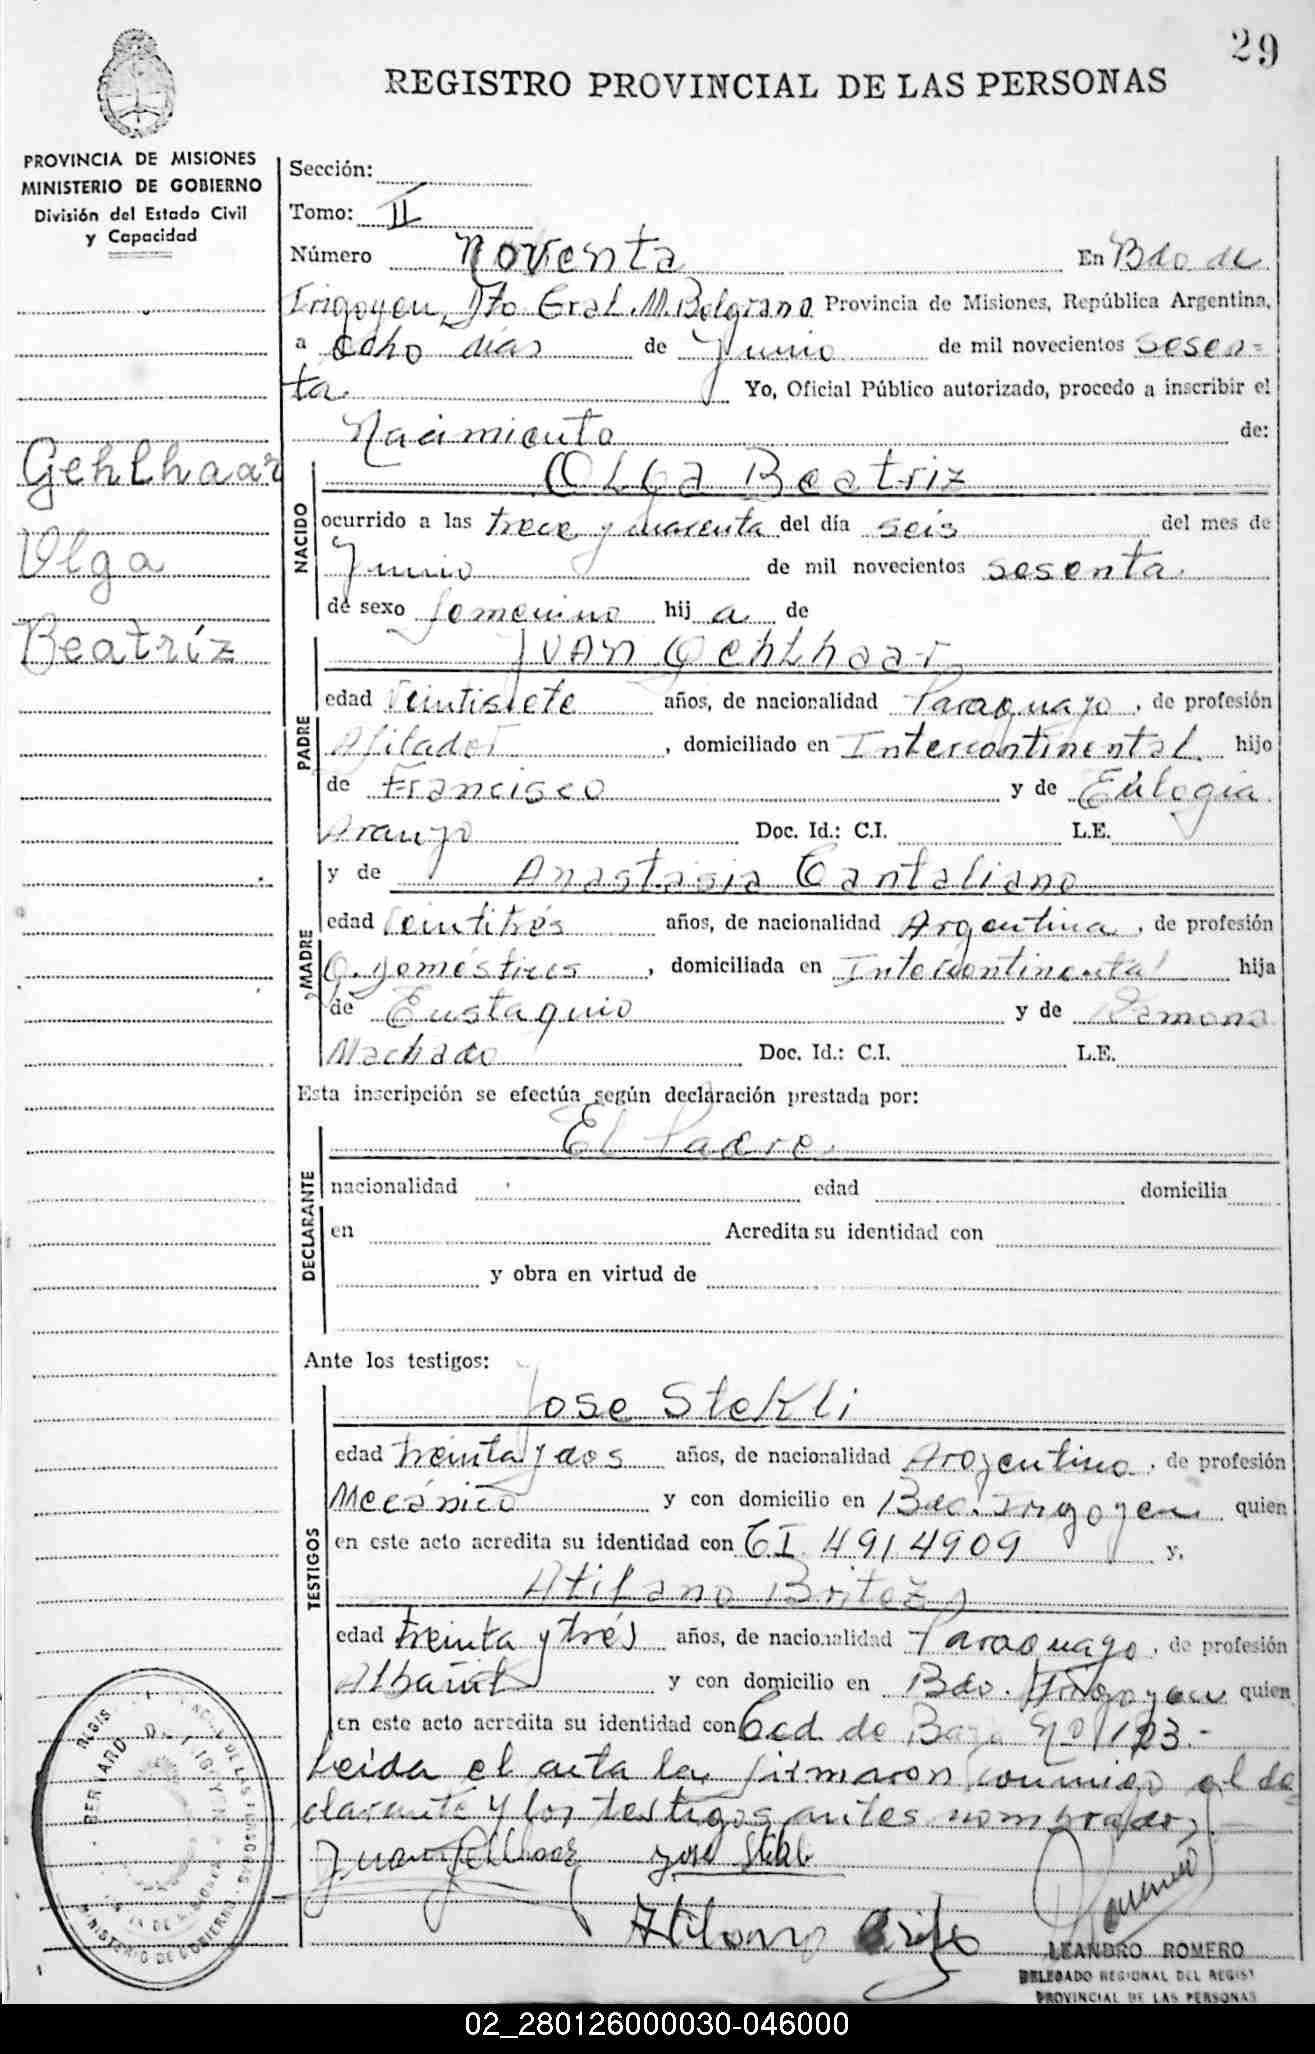 29
REGISTRO PROVINCIAL DE LAS PERSONAS
PROVINCIA DE MISIONES
MINISTERIO DE GOBIERNO
División del Estado Civil
y Capacidad
Gehlhaar
Olga
Beatríz
Sección:
Tomo: II
Número Noventa En Bdo de
Irigoyen, Dto Gral. M. Belgrano Provincia de Misiones, República Argentina,
a ocho días de Junio de mil novecientos sesen=
ta Yo, Oficial Público autorizado, procedo a inscribir el
Nacimiento de:
NACIDO
OLGa Beatriz
ocurrido a las trece y cuarenta del día seis del mes de
Junio de mil novecientos sesenta
de sexo femenino hij a de
PADRE
JUAN GehLhaar
edad veintisiete años, de nacionalidad Paraguayo, de profesión
Afilador, domiciliado en Intercontinental hijo
de Francisco y de Eulogia
Araujo Doc. Id.: C.I. L.E.
MADRE
y de Anastasia Cantaliano
edad veintitrés años, de nacionalidad Argentina, de profesión
Q. domésticos, domiciliada en Intercontinental hija
de Eustaquio y de Ramona
Machado Doc. Id.: C.I. L.E.
Esta inscripción se efectúa según declaración prestada por:
DECLARANTE
El Padre
nacionalidad edad domicilia
en Acredita su identidad con
y obra en virtud de
Ante los testigos:
TESTIGOS
Jose Stekli
edad treinta y dos años, de nacionalidad Argentino, de profesión
Mecánico y con domicilio en Bdo. Irigoyen quien
en este acto acredita su identidad con CI 4914909 y,
Atilano Britez
edad treinta y trés años, de nacionalidad Paraguayo, de profesión
Albañil y con domicilio en Bdo. Irigoyen quien
en este acto acredita su identidad con Ced de Nº 123.-
Leida el acta la firmaron conmigo el de
clarante y los testigos antes nombrados.
Juan Gehlhaar Jose Stekli
Atilano Britez
LEANDRO ROMERO
DELEGADO REGIONAL DEL REGIST
PROVINCIAL DE LAS PERSONAS
02_280126000030-046000